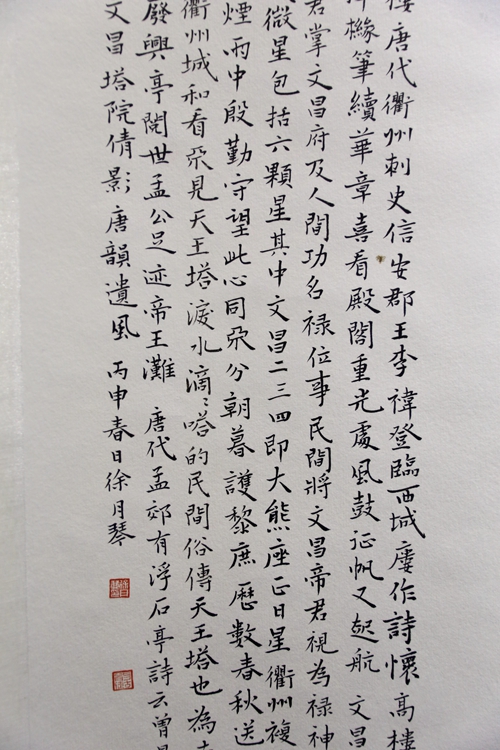 樓唐代衢州刺史信安郡王李禕登臨西城屢作詩懷高樓
椽筆續華章喜看殿閣重光處風鼓征帆又起航文昌
君掌文昌府及人間功名祿位事民間將文昌帝君視為祿神
微星包括六顆星其中文昌二三四即大熊座正日星衢州複
煙雨中殷勤守望此心同飛分朝暮護黎庶歷數春秋送
衢州城和看飛見天王塔淚水滴〻嗒的民間俗傳天王塔也為
廢興亭閱世孟公足迹帝王灘唐代孟郊有浮石亭詩云曾是
文昌塔院倩影唐韻遺風丙申春日徐月琴